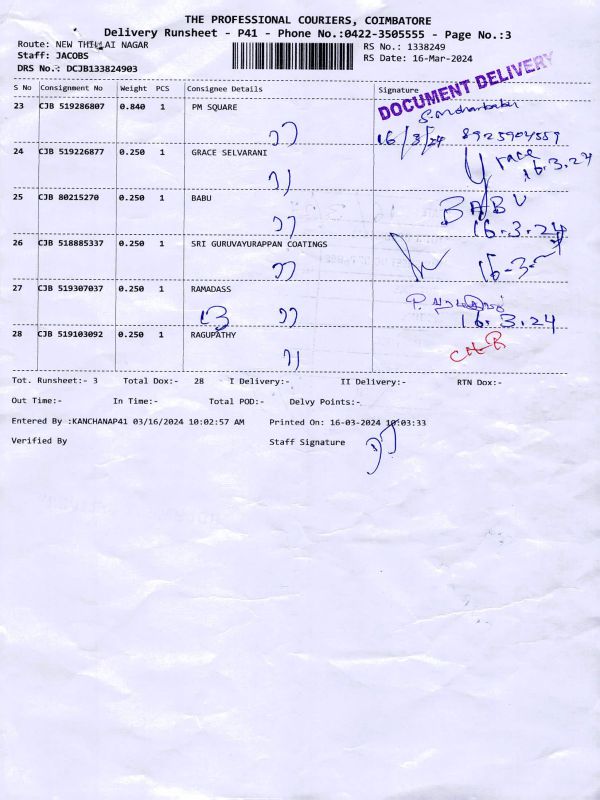 THE PROFESSIONAL COURIERS, COIMBATORE
Delivery Runsheet - P41 - Phone No.:0422-3505555 - Page No.:3
Route: NEW THILLAI NAGAR
RS No.: 1338249
Staff: JACOBS
RS Date: 16-Mar-2024
DRS No.: DCJB133824903
DOCUMENT DELIVERY
S No Consignment No Weight PCS Consignee Details Signature
23 CJB 519286807 0.840 1 PM SQUARE
16/3/24 8925904559
24 CJB 519226877 0.250 1 GRACE SELVARANI
Grace
16.3.24
25 CJB 80215270 0.250 1 BABU
BABU
16.3.24
26 CJB 518885337 0.250 1 SRI GURUVAYURAPPAN COATINGS
16-3-
27 CJB 519307037 0.250 1 RAMADASS
13
16.3.24
28 CJB 519103092 0.250 1 RAGUPATHY
Tot. Runsheet:- 3 Total Dox:- 28 I Delivery:- II Delivery:- RTN Dox:-
Out Time:- In Time:- Total POD:- Delvy Points:-
Entered By :KANCHANAP41 03/16/2024 10:02:57 AM Printed On: 16-03-2024 10:03:33
Verified By Staff Signature